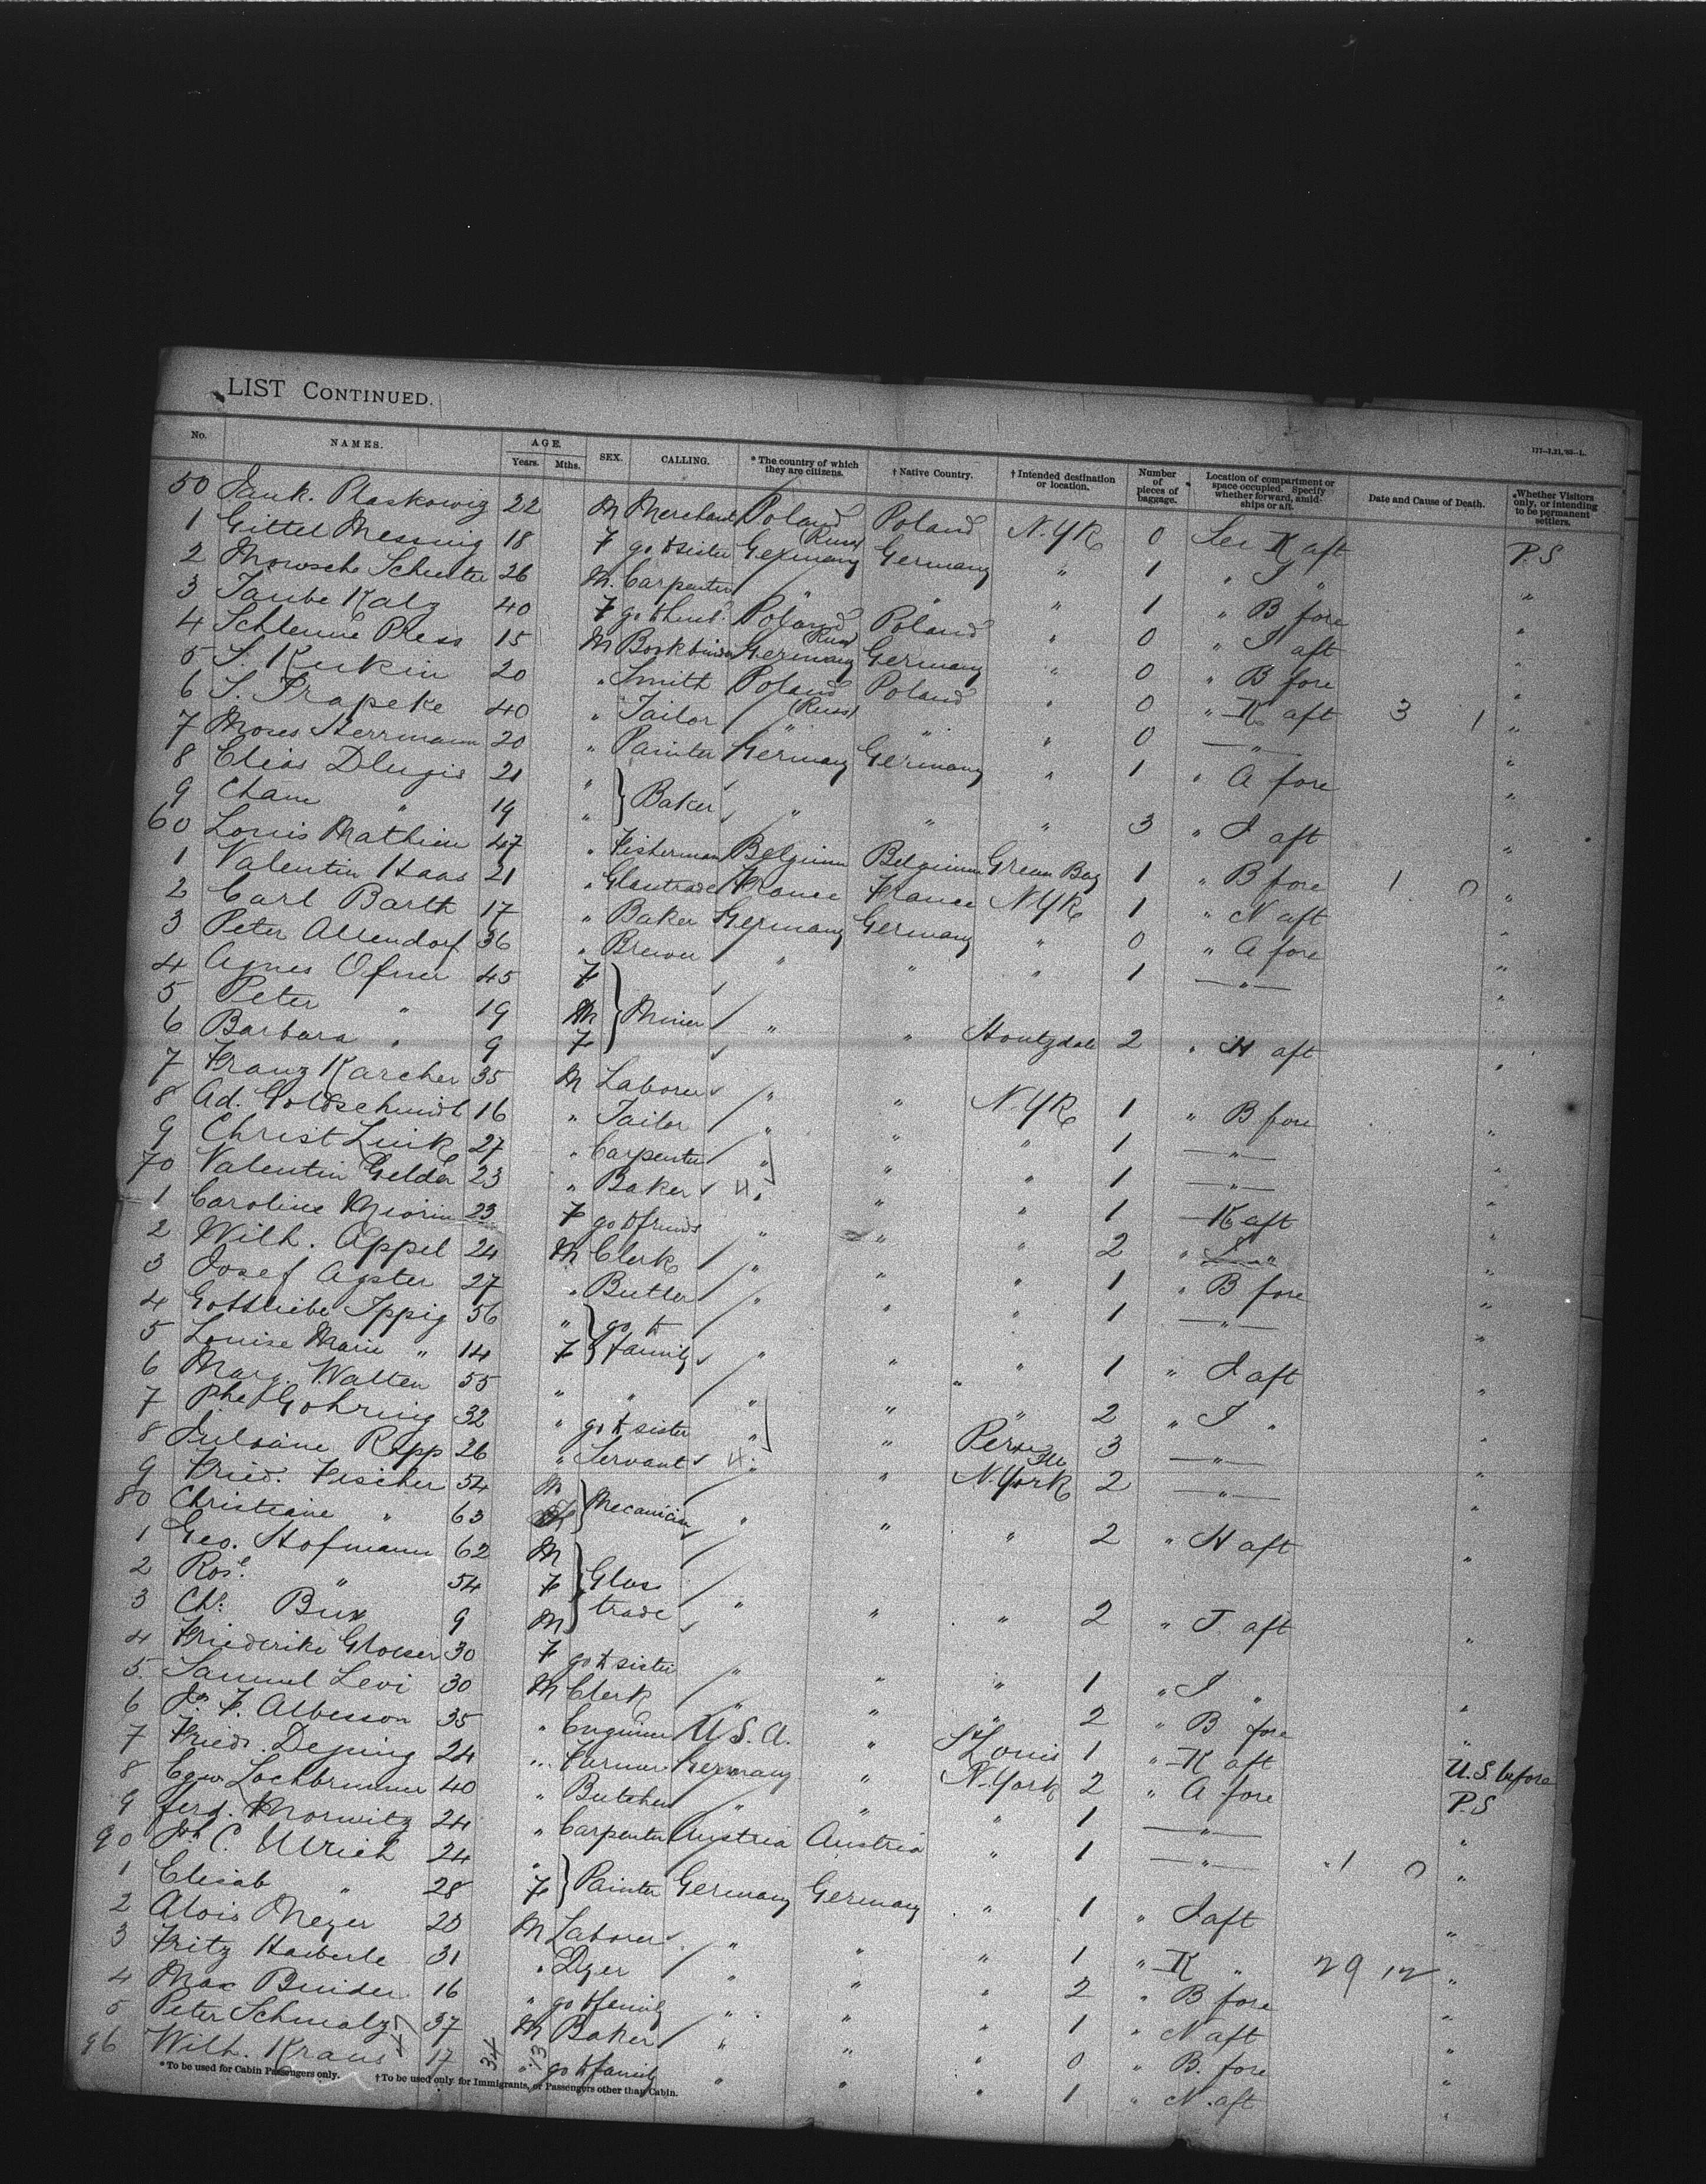 LIST CONTINUED.
111-1,21,'93-L.
No. NAMES. AGE. Years. Mths. SEX. CALLING. * The country of which they are citizens. † Native Country. † Intended destination or location. Number of pieces of baggage. Location of compartment or space occupied. Specify whether forward, amidships or aft. Date and Cause of Death. Whether Visitors only, or intending to be permanent settlers.
50 Jank. Plaskowig 22 M Merchant Poland (Russ) Poland N.YK 0 K aft P.S
1 Gittel Messnig 18 F go to sister Germany Germany " 1 " J " "
2 Mowsche Schuster 26 M. Carpenter " " " 1 " B fore "
3 Taube Katz 40 F go to husb. Poland (Russ) Poland " 0 " J aft "
4 Press 15 M Bookbinder Germany Germany " 0 " B fore "
5 S. 20 " Smith Poland (Russ) Poland " 0 " K aft 3 1 "
6 S. Trapeke 40 " Tailor " " " 0 " "
7 Moses Herrmann 20 " Painter Germany Germany " 1 " A fore "
8 Elias Dlugis 21 "
9 Cham " 19 " Baker " " " 3 " J aft "
60 Louis Mathieu 47 " Fisherman Belgium Belgium Green Bay 1 " B fore 1 0 "
1 Valentin Haas 21 " Glastrade France France N.YK 1 " N aft "
2 Carl Barth 17 " Baker Germany Germany " 0 " A fore "
3 Peter Allendorf 36 " Brewer " " " 1 " "
4 Agnes Ofner 45 F
5 Peter " 19 M Miner " " Houtzdale 2 " H aft "
6 Barbara " 9 F
7 Franz Karcher 35 M Laborer " " N.YK 1 " B fore "
8 Ad. Goldschmidt 16 " Tailor " " " 1 " "
9 Christ Link 27 " Carpenter " " " 1 " "
70 Valentin Gelder 23 " Baker " " " 1 K aft "
1 Caroline 23 F go to friends " " " 2 " "
2 Wilh. Appel 24 M Clerk " " " 1 " B fore "
3 Josef Agster 27 " Butler " " " 1 " "
4 Gottliebe Ippig 56 " go to
5 Louise Marie " 14 F family " " " 1 " J aft "
6 Marg. Walten 55 " " " " " 2 " J " "
7 Gohring 32 " go to sister " " 3 " "
8 Juliane Rapp 26 " Servant " " N. York 2 " "
9 Fried. Fischer 54 M Mecanician " " " 2 " H aft "
80 Christiane " 63
1 Geo. Hofmann 62 M
2 " 54 F Glas trade " " " 2 " J. aft "
3 Chs. Bux 9 M
4 Friederike Gloeser 30 F go to sister " " " 1 " J " "
5. Samuel Levi 30 M Clerk " " " 2 " B fore "
6 F. Albesson 35 " Engineer U.S.A. " St Louis 1 " K aft U.S. before
7 Friedr. Dejung 24 " Farmer Germany " N. York 2 " A fore P.S
8 Lochbrunner 40 " Butcher " " " 1 " "
9 Ferd. Morwitz 24 " Carpenter Austria Austria " 1 " 1 0 "
90 C. Ulrich 24 "
1 Elisab " 28 F Painter Germany Germany " 1 " J aft "
2 Alois Meyer 28 M Laborer " " " 1 " K " 29 12 "
3 Fritz Haeberle 31 " Dyer " " " 2 " B fore "
4 Max Binder 16 " go to family " " " 1 " N aft "
5 Peter Schmalz 37 M Baker " " " 0 " B. fore "
96 Wilh. Kraus 17 " go to family " " " 1 " N. aft "
34 13
* To be used for Cabin Passengers only. † To be used only for Immigrants, or Passengers other than Cabin.